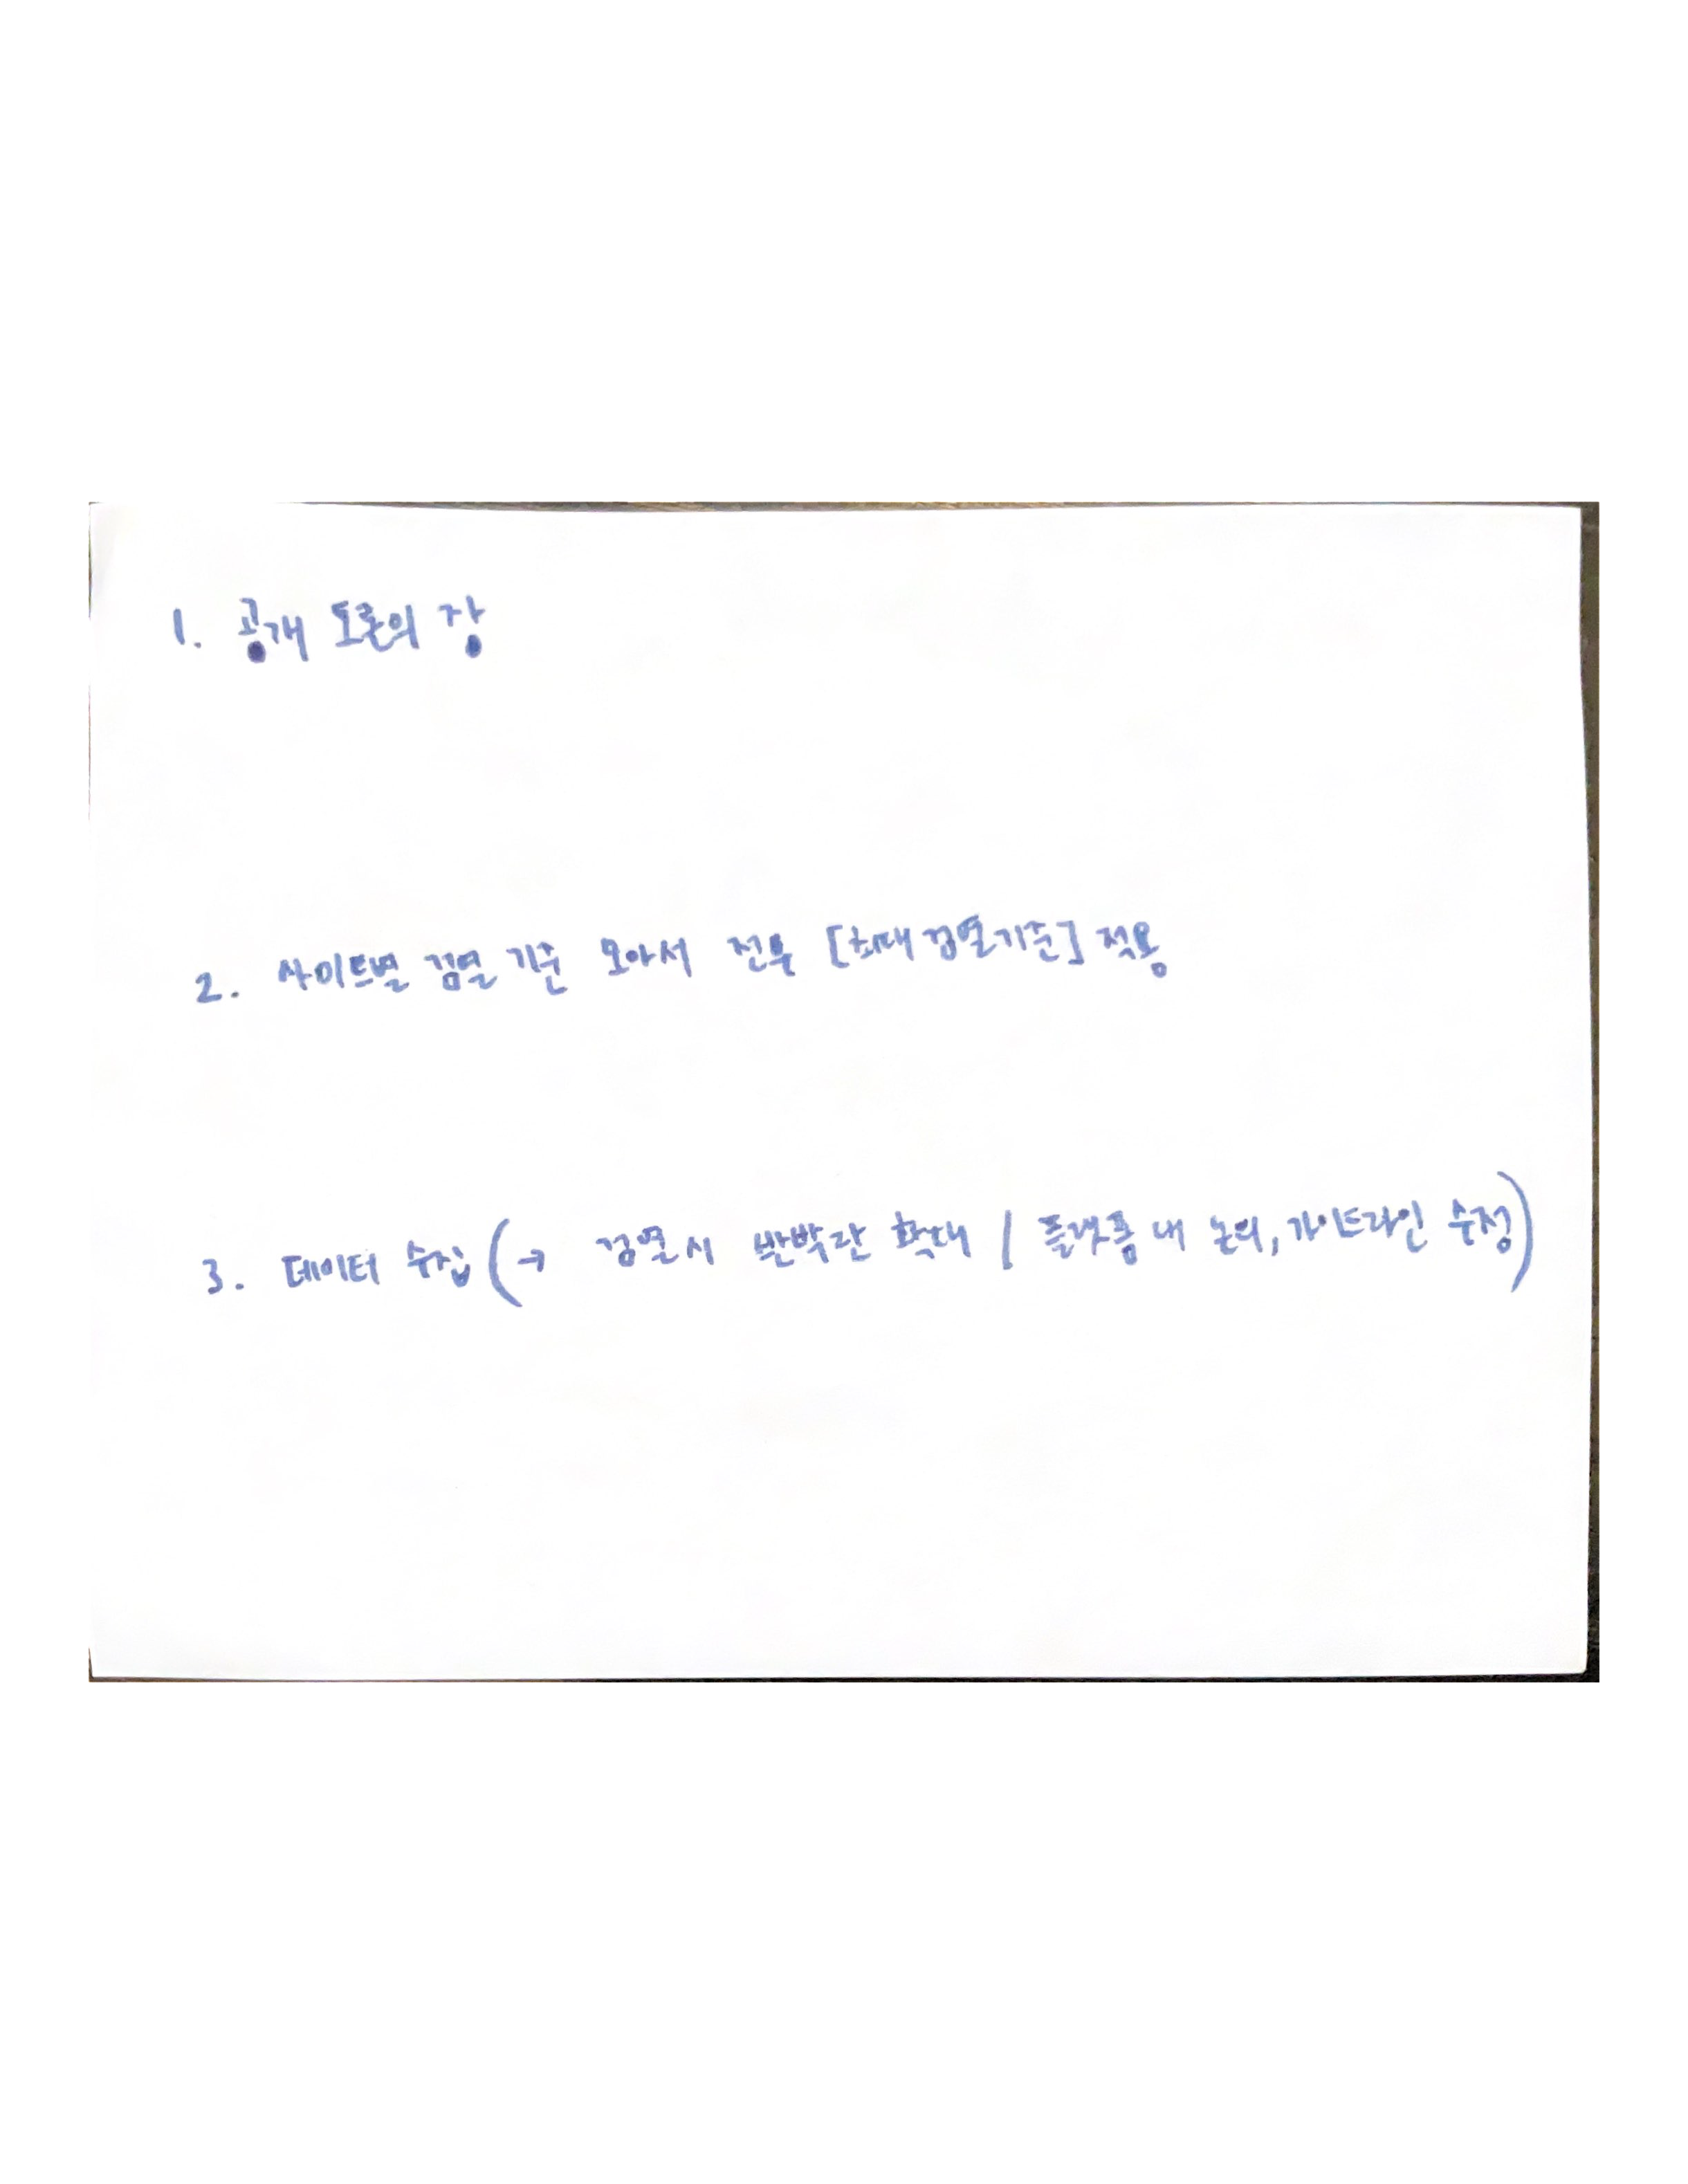 1. 공개 토론의 장
2. 사이트별 검열 기준 모아서 전부 [최대 검열기준] 적용
3. 데이터 수집 (→ 검열시 반박란 확대 / 플랫폼 내 논의, 가이드라인 수정)